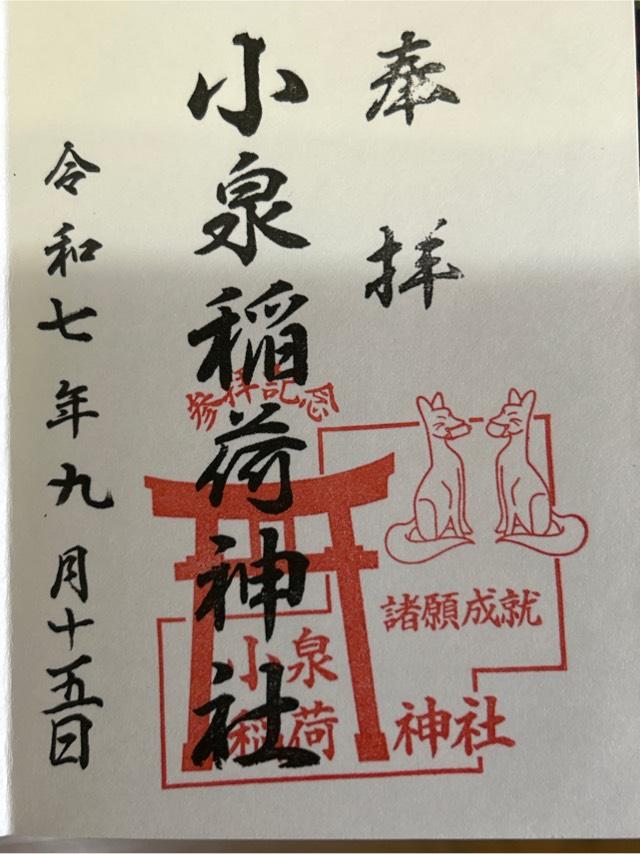 奉拝
小泉稲荷神社
令和七年九月十五日
参拝記念
諸願成就
小泉
稲荷神社